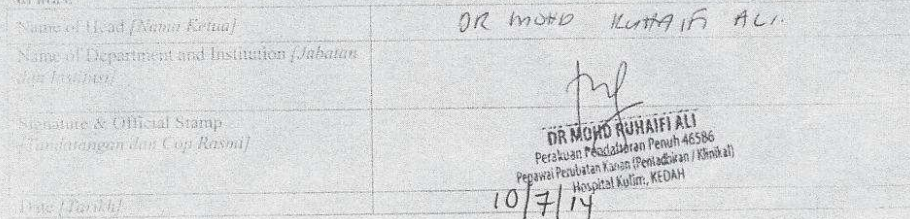 Name of Head [Nama Ketua]
DR MOHD RUHAIFI ALI.
Name of Department and Institution [Jabatan
dan Institusi]
Signature & Official Stamp
[Tandatangan dan Cop Rasmi]
DR MOHD RUHAIFI ALI
Perakuan Pendaftaran Penuh 46586
Pegawai Perubatan Kanan (Pentadbiran / Klinikal)
Hospital Kulim, KEDAH
Date [Tarikh]
10/7/14